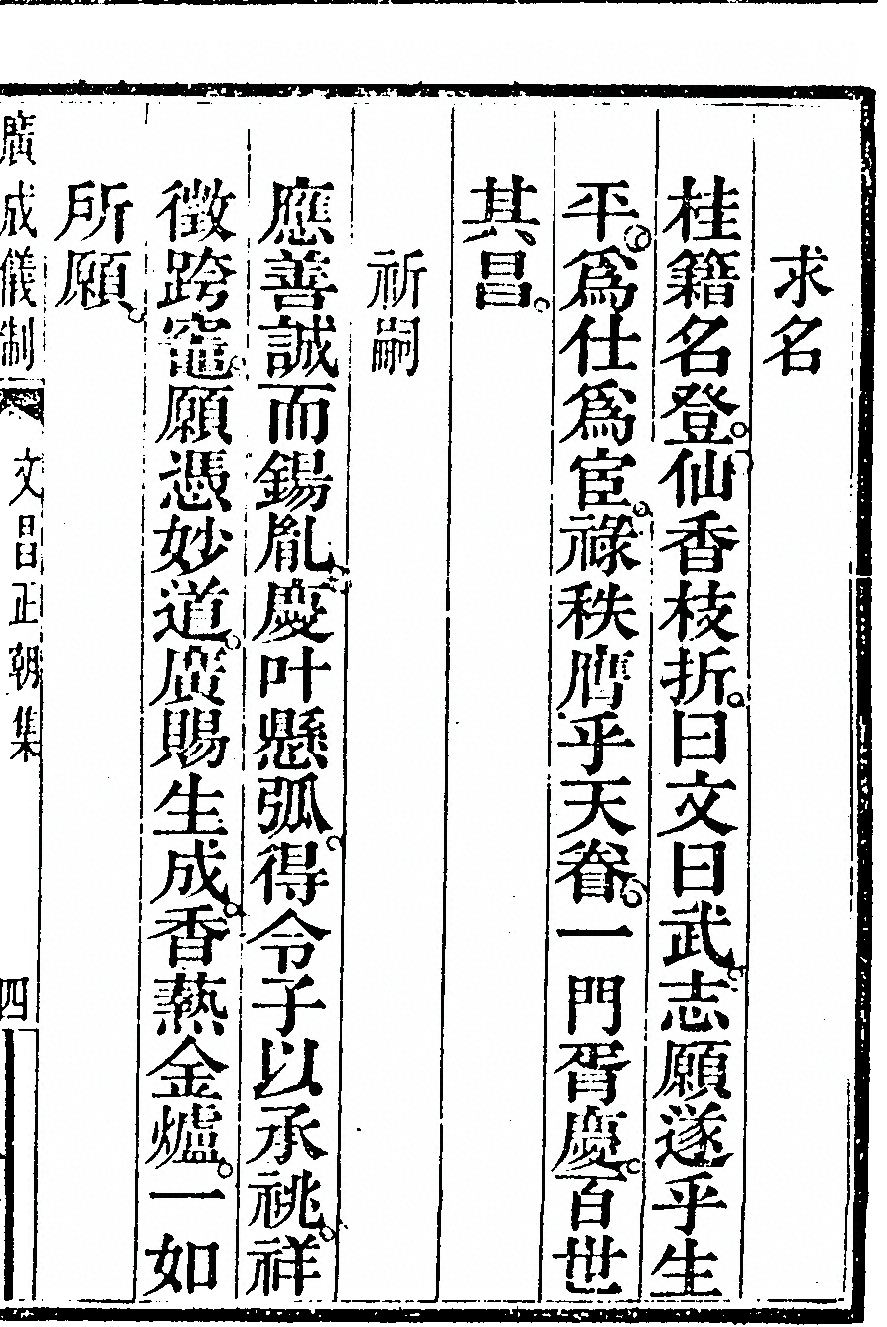 求名
桂籍名登。仙香枝折。曰文曰武。志願遂乎生
平。爲仕爲宦。祿秩膺乎天眷。一門胥慶。百世
其昌。
祈嗣
應善誠而錫胤。慶叶懸弧。得令子以承祧。祥
徵跨竈。願憑妙道。廣賜生成。香爇金爐。一如
所願。
廣成儀制 文昌正朝集 四